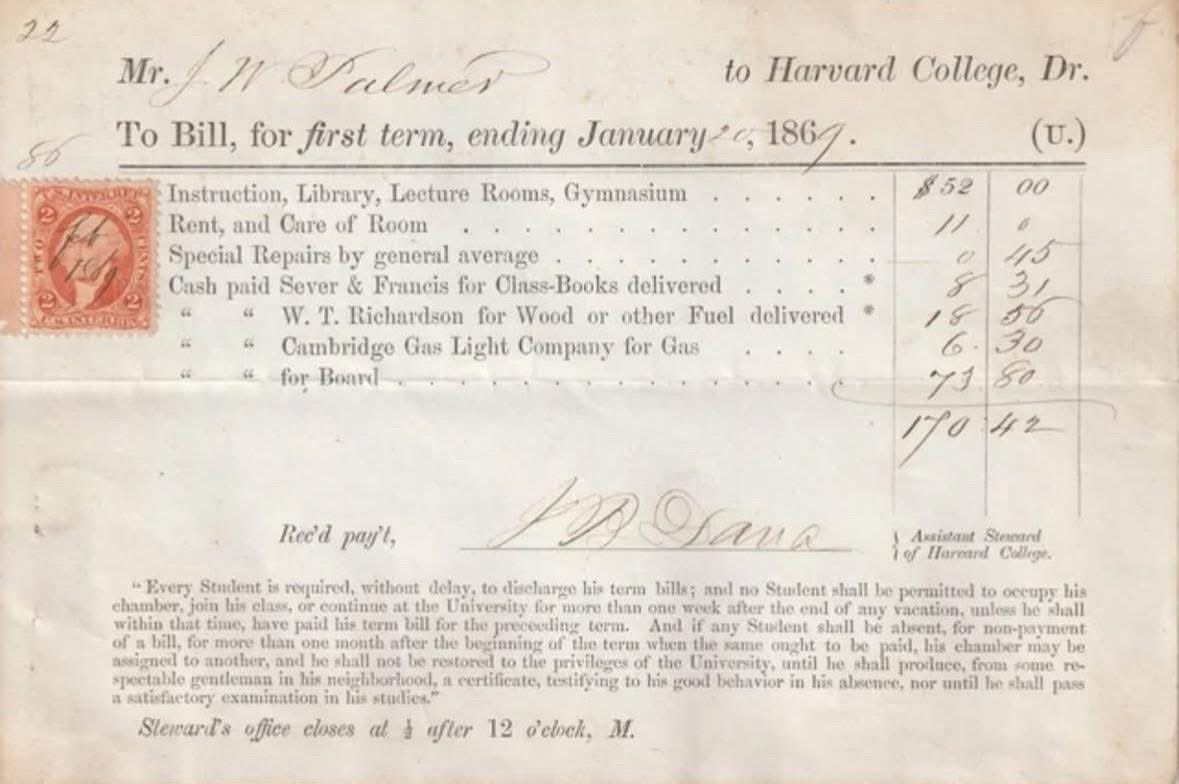 22
Mr. J. W. Palmer to Harvard College, Dr.
To Bill, for first term, ending January 20, 1869. (U.)
86
U.S. INTER. REV.
2 2
TWO CENTS
Feb
1869
2 2
U.S. INTER. REV.
Instruction, Library, Lecture Rooms, Gymnasium . . . . . . $52 00
Rent, and Care of Room . . . . . . . . . . . . . . 11 0
Special Repairs by general average . . . . . . . . . . . 0 45
Cash paid Sever & Francis for Class-Books delivered . . . . * 8 31
“ “ W. T. Richardson for Wood or other Fuel delivered * 18 56
“ “ Cambridge Gas Light Company for Gas . . . . 6. 30
“ “ for Board . . . . . . . . . . . . . . 73. 80
170 42
Rec'd pay't, J B Dana } Assistant Steward
} of Harvard College.
“Every Student is required, without delay, to discharge his term bills; and no Student shall be permitted to occupy his
chamber, join his class, or continue at the University for more than one week after the end of any vacation, unless he shall
within that time, have paid his term bill for the preceeding term. And if any Student shall be absent, for non-payment
of a bill, for more than one month after the beginning of the term when the same ought to be paid, his chamber may be
assigned to another, and he shall not be restored to the privileges of the University, until he shall produce, from some re-
spectable gentleman in his neighborhood, a certificate, testifying to his good behavior in his absence, nor until he shall pass
a satisfactory examination in his studies.”
Steward's office closes at ½ after 12 o'clock, M.